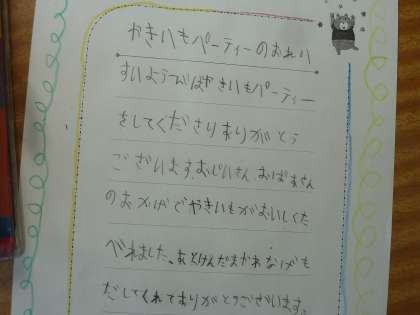 やきいもパーティーのおれい
すいようびばやきいもパーティー
をしてくださりありがとう
ございます。おじいさん、おばあさん
のおかげでやきいもがおいしくた
べれました。あとけんだまかわなげも
だしてくれてありがとうございます。